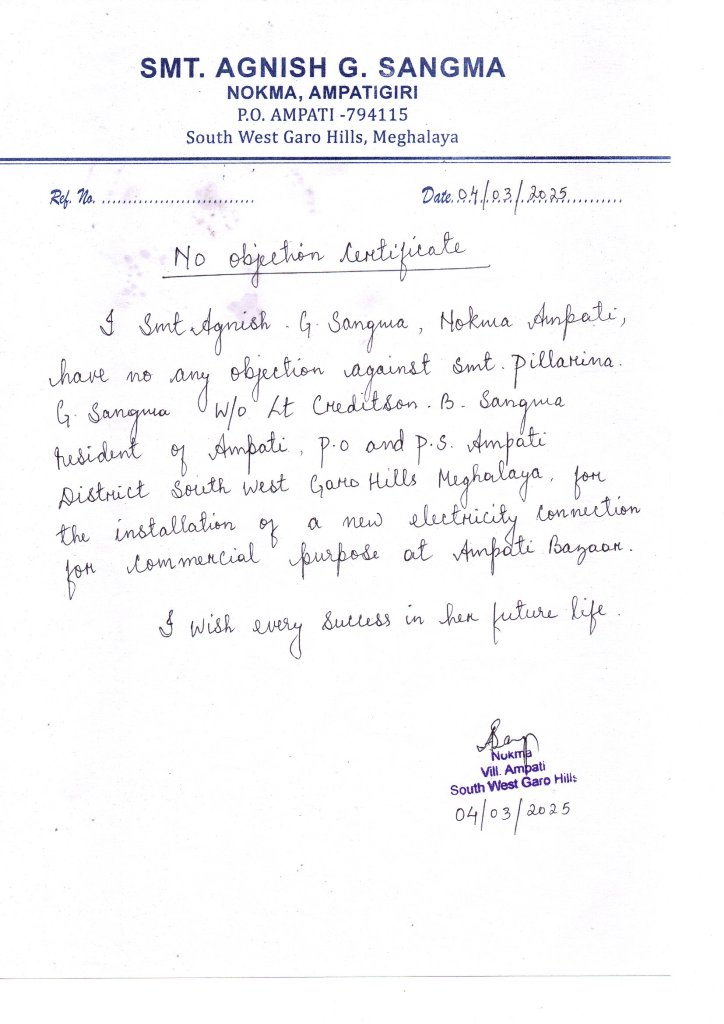 SMT. AGNISH G. SANGMA
NOKMA, AMPATIGIRI
P.O. AMPATI -794115
South West Garo Hills, Meghalaya
Ref. No. ..............................
Date. 04/03/2025..........
No objection Certificate
I Smt. Agnish. G. Sangma, Nokma Ampati,
have no any objection against Smt. Pillarina.
G. Sangma W/o Lt Creditson. B. Sangma
resident of Ampati, P.O and P.S. Ampati
District South West Garo Hills Meghalaya, for
the installation of a new electricity connection
for commercial purpose at Ampati Bazaar.
I wish every success in her future life.
Nukma
Vill. Ampati
South West Garo Hills
04/03/2025